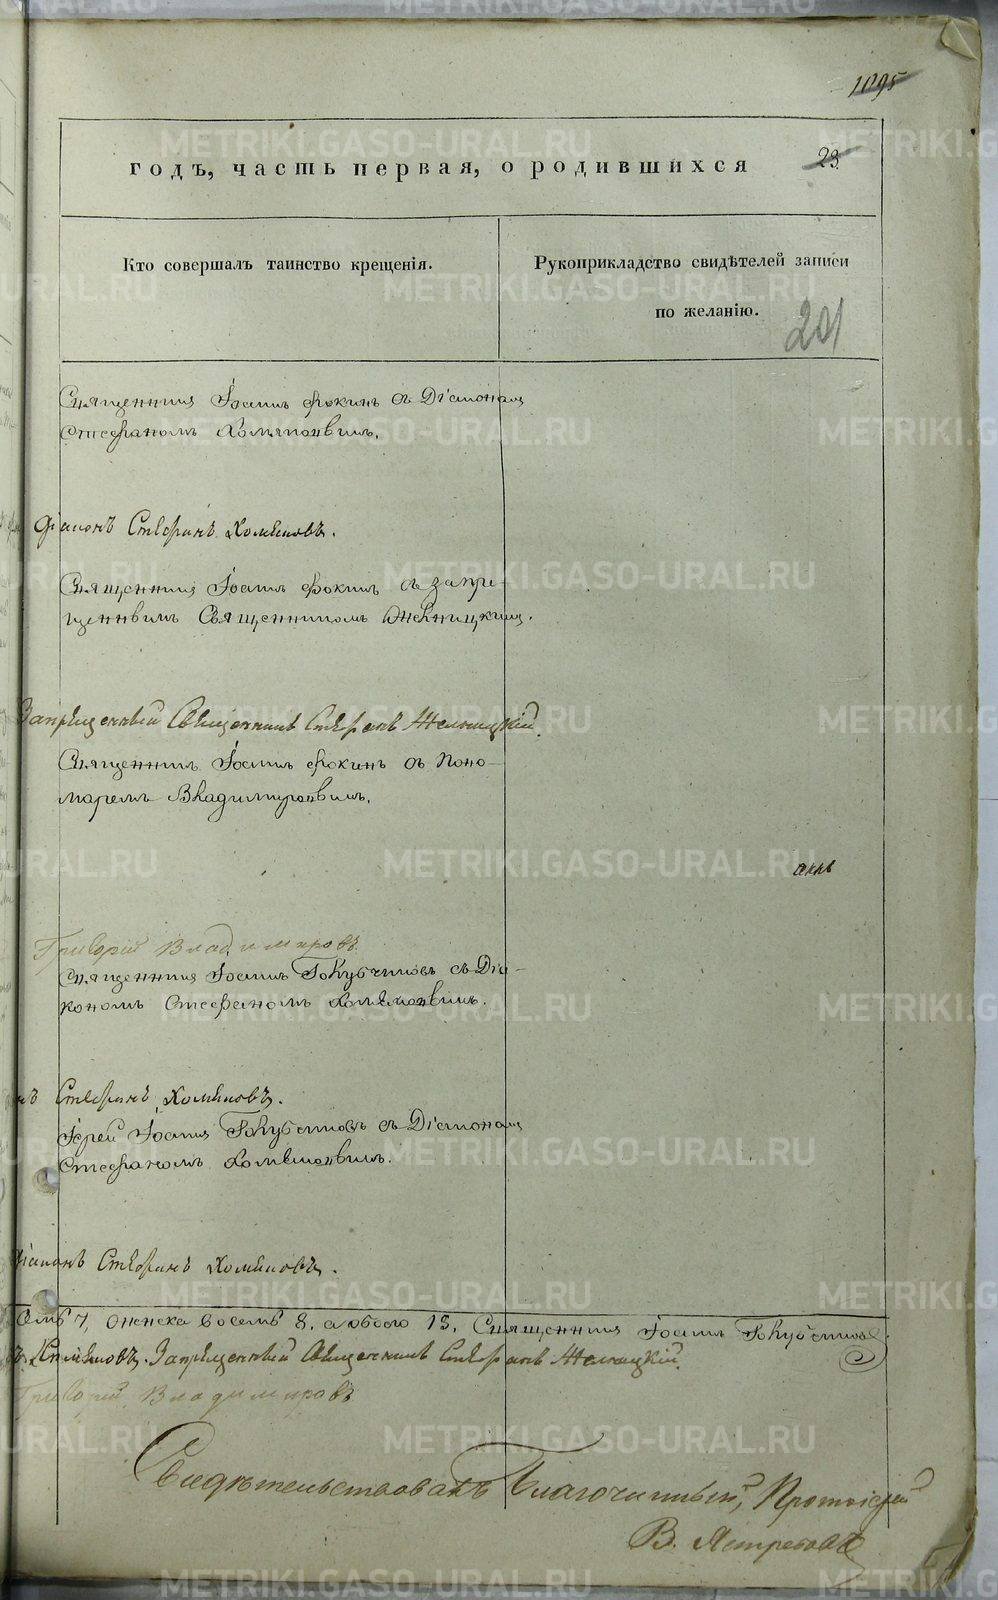 1095
годъ, часть первая, о родившихся
23
Кто совершалъ таинство крещенія.
Рукоприкладство свидѣтелей записи
по желанію.
201
Священникъ Іоаннъ Фокинъ съ Діакономъ
Стефаномъ Хомяковымъ.
Діаконъ Стефанъ Хомяковъ.
Священникъ Іоаннъ Фокинъ съ запре-
щеннымъ Священникомъ
Запрещенный Священникъ Стефанъ
Священникъ Іоаннъ Фокинъ съ Поно-
маремъ Владимировымъ.
Григорій Владимировъ
Священникъ Іоаннъ Голубчиковъ съ Діа-
кономъ Стефаномъ Хомяковымъ.
нъ Стефанъ Хомяковъ.
Іерей Іоаннъ съ Діакономъ
Стефаномъ Хомяковымъ.
Діаконъ Стефанъ Хомяковъ.
семь 7, женска восемь 8, а обоего 15, Священникъ Іоаннъ
ъ Хомяковъ. Запрещенный Священникъ Стефанъ
Григорій Владимировъ
Свидѣтельствовалъ Благочинный, Протоіерей
В. Ястребовъ
METRIKI.GASO-URAL.RU